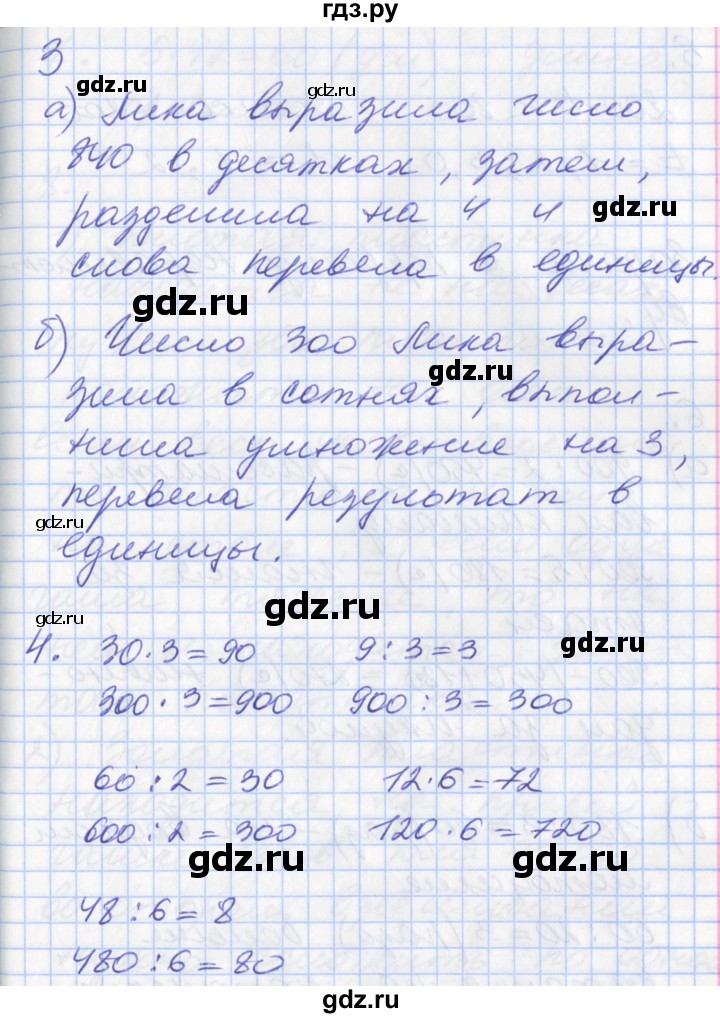 гдз.ру
3
а) Лика выразила число
840 в десятках, затем,
gdz.ru
разделила на 4 и
gdz.ru
снова перевела в единицы.
gdz.ru
б) Число 300 Лика выра-
gdz.ru
зила в сотнях, выпол-
нила умножение на 3,
перевела результат в
gdz.ru
единицы.
gdz.ru
gdz.ru
4. 30·3=90 9:3=3
gdz.ru
300·3=900 900:3=300
60:2=30 12·6=72
600:2=300 120·6=720
gdz.ru gdz.ru
48:6=8
480:6=80
gdz.ru